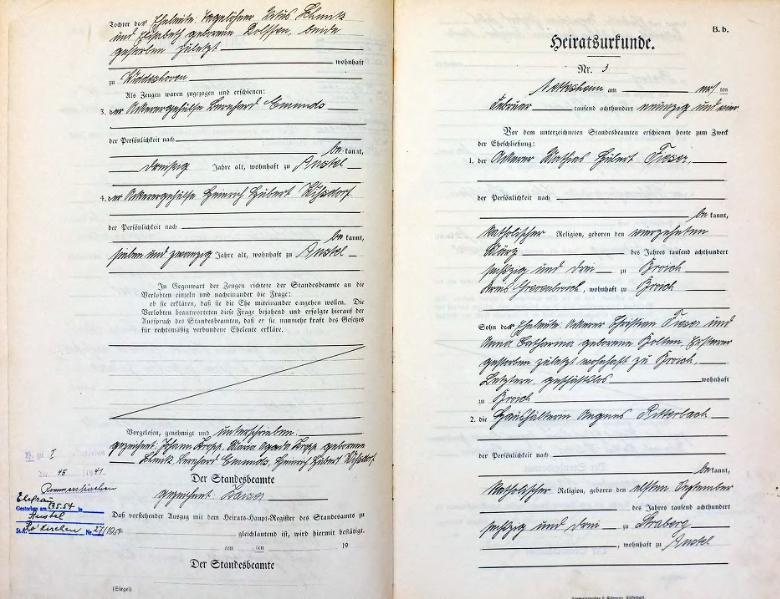 Tochter der Eheleute Tagelöhner
und Elisabeth geborene beide
gestorben zuletzt
wohnhaft
zu
Als Zeugen waren zugezogen und erschienen:
3. der Ackerergehülfe Bernhard Esmundo
der Persönlichkeit nach
be kannt,
dreißig Jahre alt, wohnhaft zu Anstel
4. der Ackerergehülfe Heinrich Hubert
der Persönlichkeit nach
be kannt,
sieben und zwanzig Jahre alt, wohnhaft zu Anstel
In Gegenwart der Zeugen richtete der Standesbeamte an die
Verlobten einzeln und nacheinander die Frage:
ob sie erklären, daß sie die Ehe miteinander eingehen wollen. Die
Verlobten beantworteten diese Frage bejahend und erfolgte hierauf der
Ausspruch des Standesbeamten, daß er sie nunmehr kraft des Gesetzes
für rechtmäßig verbundene Eheleute erkläre.
Vorgelesen, genehmigt und unterschrieben.
gezeichnet, Johann Kropp, Maria Agatha Kropp geborene
Bernhard Esmundo, Heinrich Hubert
Der Standesbeamte
gezeichnet
Daß vorstehender Auszug mit dem Heirats-Haupt-Register des Standesamts zu
gleichlautend ist, wird hiermit bestätigt.
am ten 19
Der Standesbeamte
Rommerskirchen
Ehefrau
Gestorben am 13.5.54 in
Anstel
St.A. Ro'kirchen Nr 27/1954
B. b.
Heiratsurkunde.
Nr. 3
Nettesheim am ten
Februar tausend achthundert neunzig und vier
Vor dem unterzeichneten Standesbeamten erschienen heute zum Zweck
der Eheschließung:
1. der Ackerer Mathias Hubert Fieser,
der Persönlichkeit nach
be kannt,
katholischer Religion, geboren den vierzehnten
März des Jahres tausend achthundert
sechzig und drei zu Broich
Kreis Grevenbroich, wohnhaft zu Broich
Sohn der Eheleute Ackerer Christian Fieser und
Anna Catharina geborene Bolten, Ersterer
gestorben zuletzt wohnhaft zu Broich,
Letztere, geschäftlos wohnhaft
zu Broich
2. die Haushälterin Agnes Ritterbach
be kannt,
katholischer Religion, geboren den elften September
des Jahres tausend achthundert
sechzig und drei zu Straberg
, wohnhaft zu Anstel